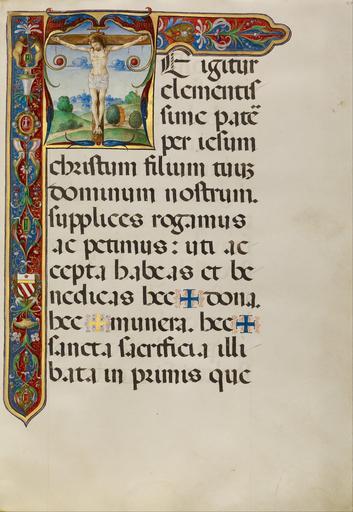 E igitur
clementis
sime patē
per iesum
christum filium tuuz
dominum nostrum.
supplices rogamus
ac petimus: uti ac
cepta habeas et be
nedicas hec ✠ dona.
hec ✠ munera. hec ✠
sancta sacrificia illi
bata in primis que